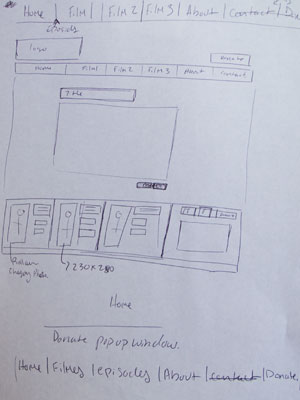 Home | FilM | FilM 2 | FilM 3 | About | Contact | Do
episodes
logo
Donate
Home | Film | Film 2 | Film 3 | About | Contact
Title
230 x 280
Home
Donate popup window.
|Home | Films | episodes | About | contact | Donate,